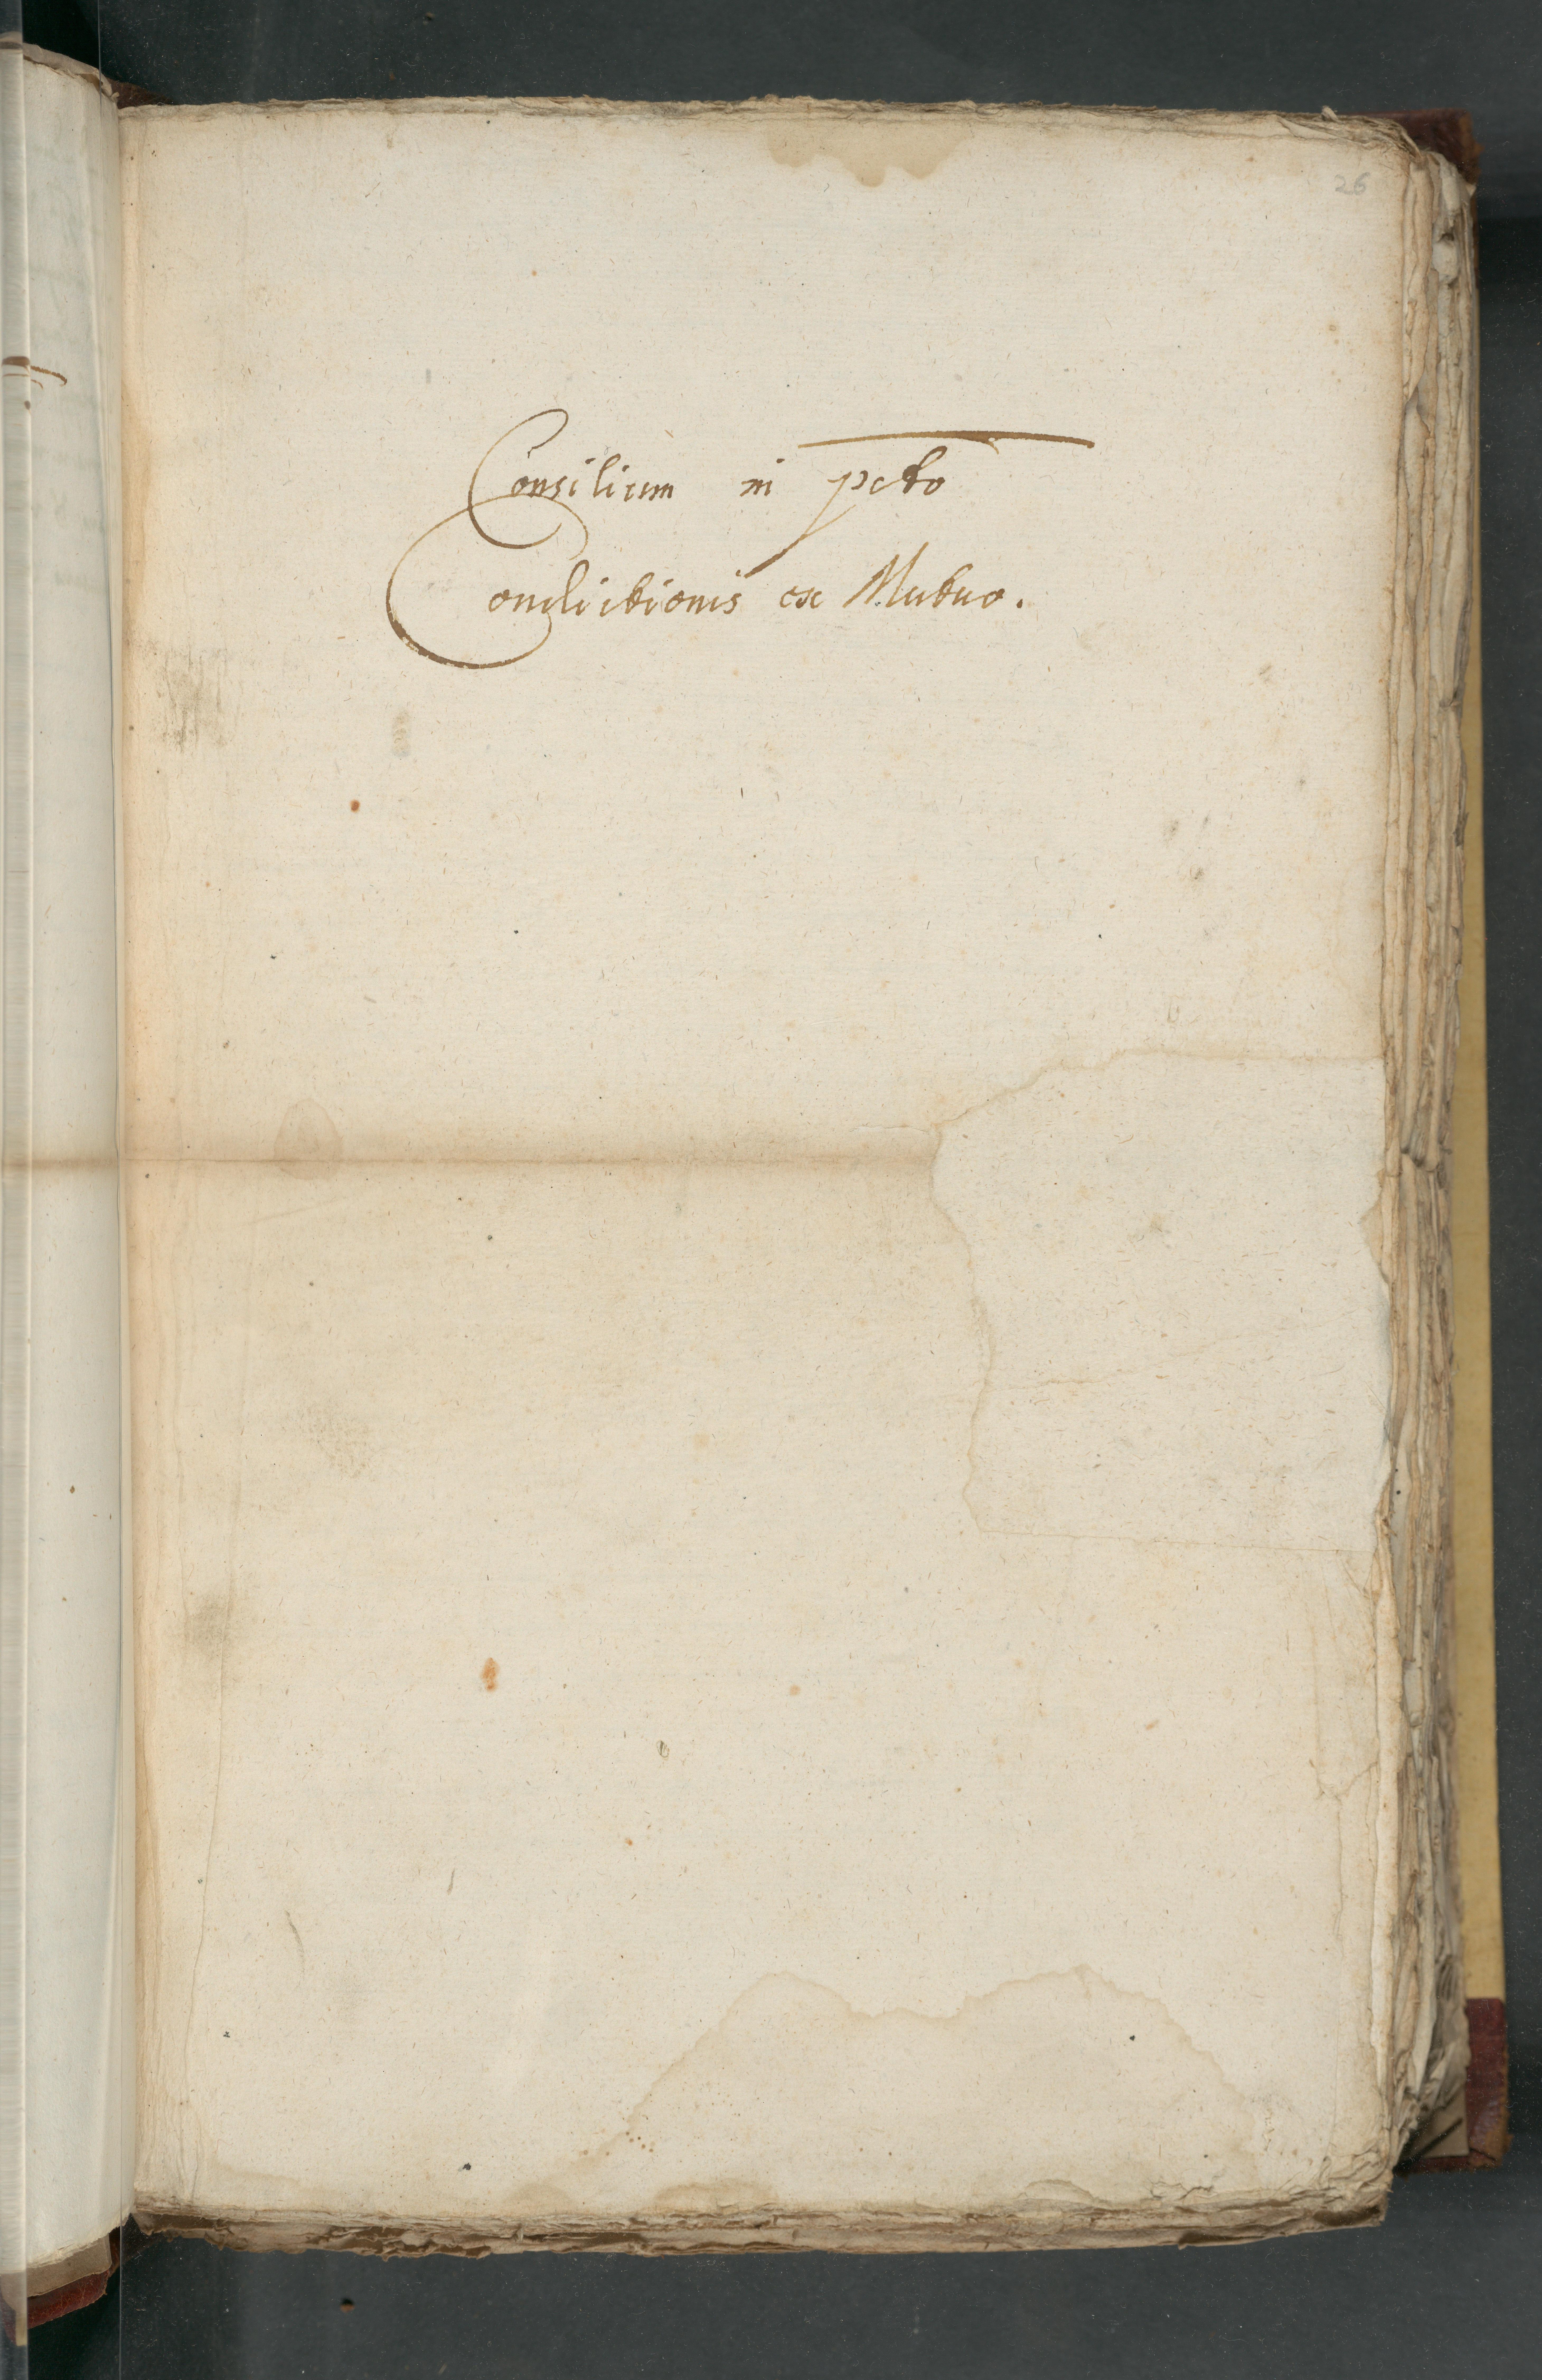 26
Consilium in pcto
Condictionis ex Mutuo.